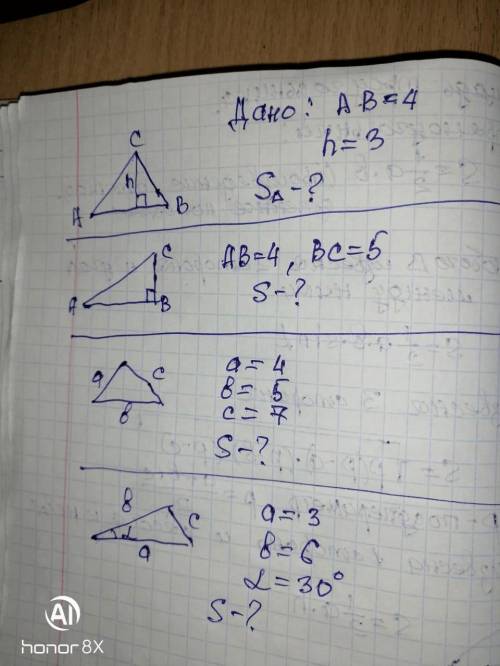 Дано: AB=4
h=3
C
h
A
B
S△-?
C
AB=4, BC=5
S-?
A
B
a
c
в
a=4
в=5
c=7
S-?
в
α
c
a
a=3
в=6
α=30°
S-?
AI
honor 8X